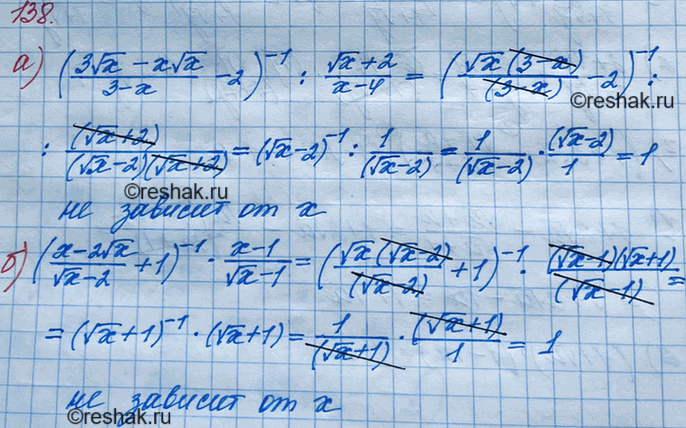 138.
а) ((3√x - x√x)/(3-x) - 2)^-1 : (√x+2)/(x-4) = ((√x(3-x))/(3-x) - 2)^-1 :
©reshak.ru
: (√x+2)/((√x-2)(√x+2)) = (√x-2)^-1 : 1/(√x-2) = 1/(√x-2) · (√x-2)/1 = 1
©reshak.ru
не зависит от x
б) ((x-2√x)/(√x-2) + 1)^-1 · (x-1)/(√x-1) = ((√x(√x-2))/(√x-2) + 1)^-1 · ((√x-1)(√x+1))/(√x-1) =
= (√x+1)^-1 · (√x+1) = 1/(√x+1) · (√x+1)/1 = 1
не зависит от x
©reshak.ru